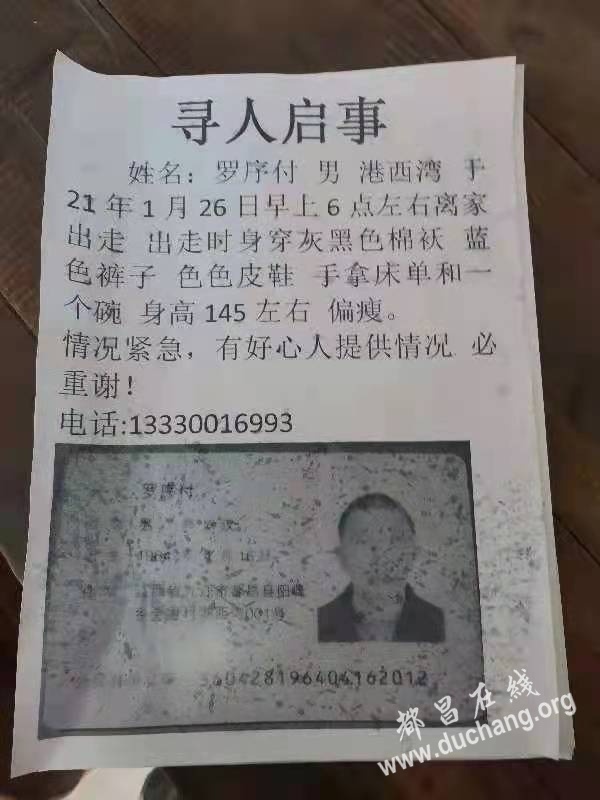 寻人启事
姓名：罗序付 男 港西湾 于
21年1月26日早上6点左右离家
出走 出走时身穿灰黑色棉袄 蓝
色裤子 色色皮鞋 手拿床单和一
个碗 身高145左右 偏瘦。
情况紧急，有好心人提供情况 必
重谢！
电话:13330016993
罗序付
都昌在线
www.duchang.org